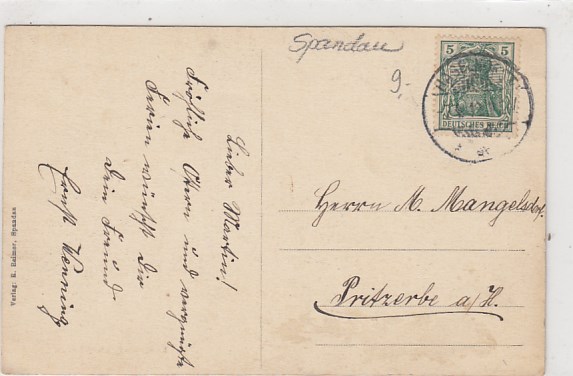 Spandau
9.-
5 5
DEUTSCHES REICH
Lieber Martin!
Fröhliche Ostern und vergnügte
Ferien wünscht Dir
Dein Freund
Ernst Henning
Herrn M. Mangelsdorf.
Pritzerbe a/H.
Verlag: R. Reimer, Spandau